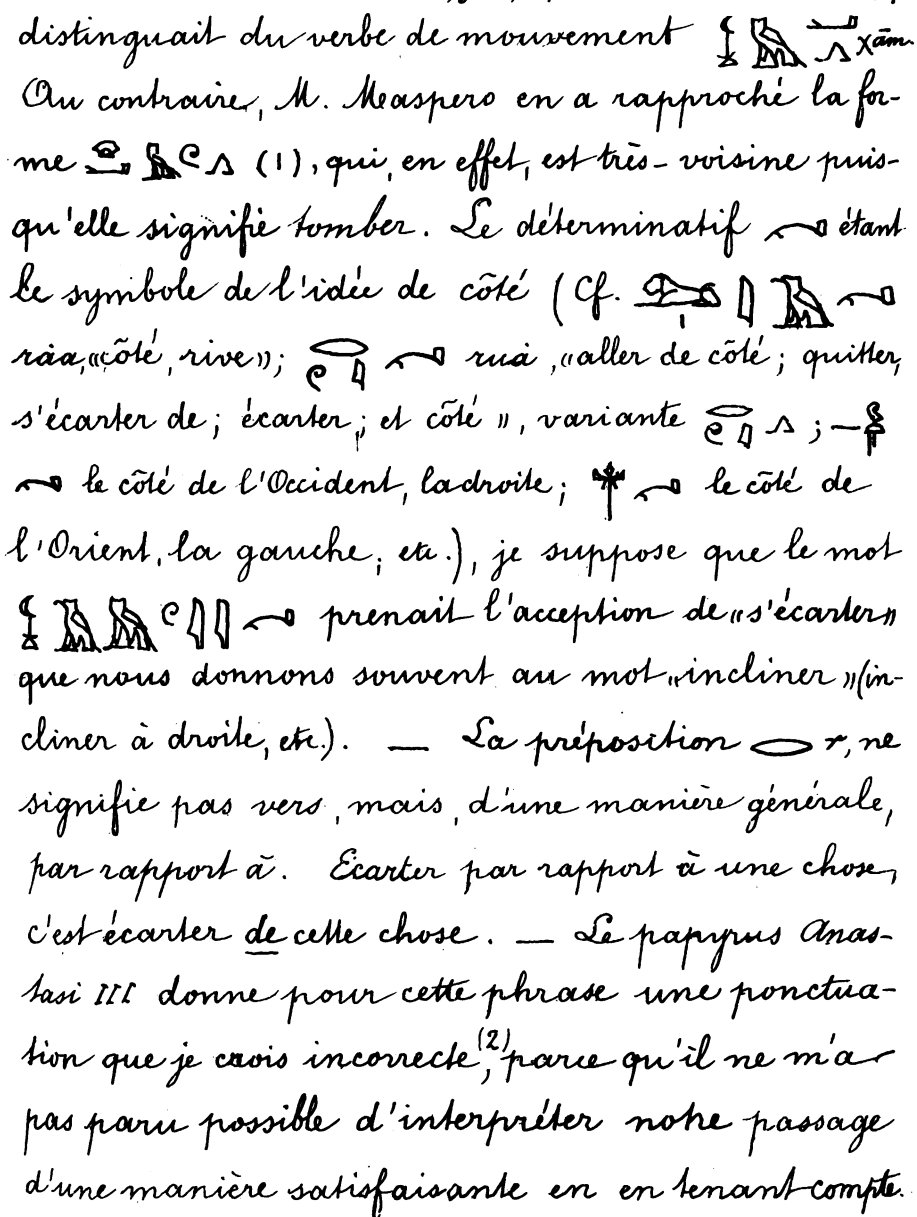 distinguait du verbe de mouvement χām.
Au contraire, M. Maspero en a rapproché la for-
me (1), qui, en effet, est très-voisine puis-
qu'elle signifie tomber. Le déterminatif étant
le symbole de l'idée de côté (Cf.
ràa, «côté, rive»; ruà, «aller de côté; quitter,
s'écarter de; écarter; et côté», variante ; —
le côté de l'Occident, la droite; le côté de
l'Orient, la gauche, etc.), je suppose que le mot
prenait l'acception de «s'écarter»
que nous donnons souvent au mot «incliner» (in-
cliner à droite, etc.). — La préposition r, ne
signifie pas vers, mais, d'une manière générale,
par rapport à. Ecarter par rapport à une chose,
c'est écarter de cette chose. — Le papyrus Anas-
tasi III donne pour cette phrase une ponctua-
tion que je crois incorrecte,(2) parce qu'il ne m'a
pas paru possible d'interpréter notre passage
d'une manière satisfaisante en en tenant compte.